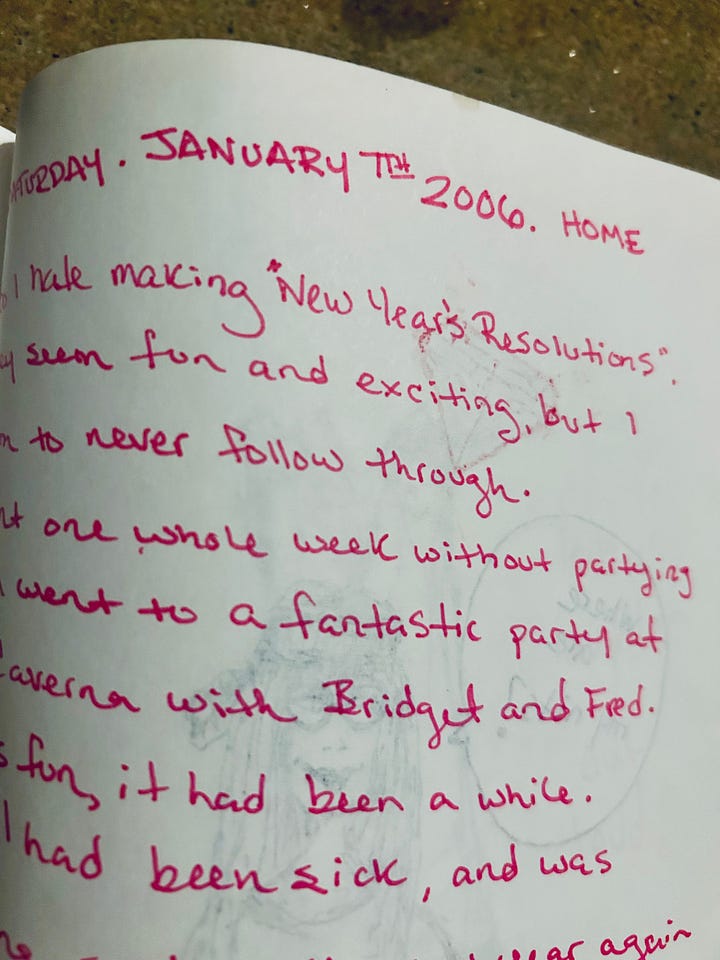 ATURDAY. JANUARY 7TH 2006. HOME
I hate making "New Year's Resolutions".
seem fun and exciting, but I
to never follow through.
one whole week without partying
I went to a fantastic party at
averna with Bridget and Fred.
s fun, it had been a while.
I had been sick, and was
year again